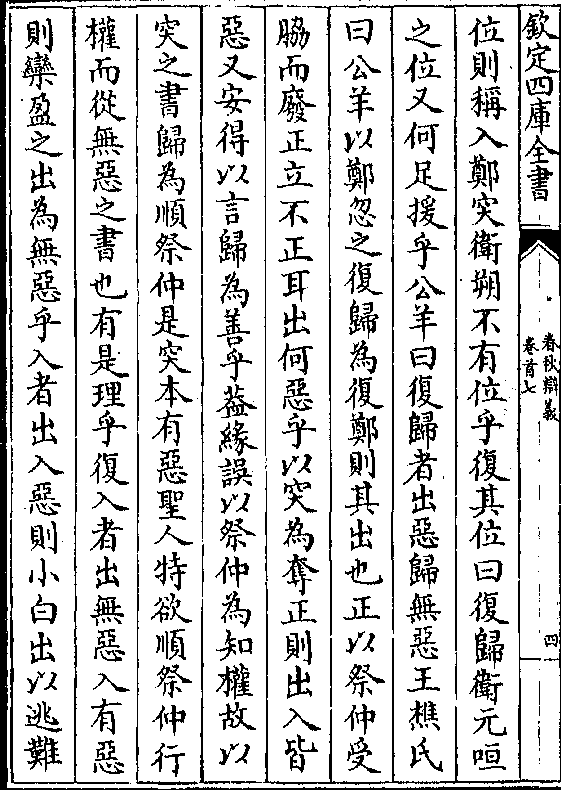 欽定四庫全書
春秋辯義
卷首七
四
位則稱入鄭突衛朔不有位乎復其位曰復歸衛元咺
之位又何足援乎公羊曰復歸者出惡歸無惡王樵氏
曰公羊以鄭忽之復歸為復鄭則其出也正以祭仲受
脇而廢正立不正耳出何惡乎以突為奪正則出入皆
惡又安得以言歸為善乎葢緣誤以祭仲為知權故以
突之書歸為順祭仲是突本有惡聖人特欲順祭仲行
權而從無惡之書也有是理乎復入者出無惡入有惡
則欒盈之出為無惡乎入者出入惡則小白出以逃難